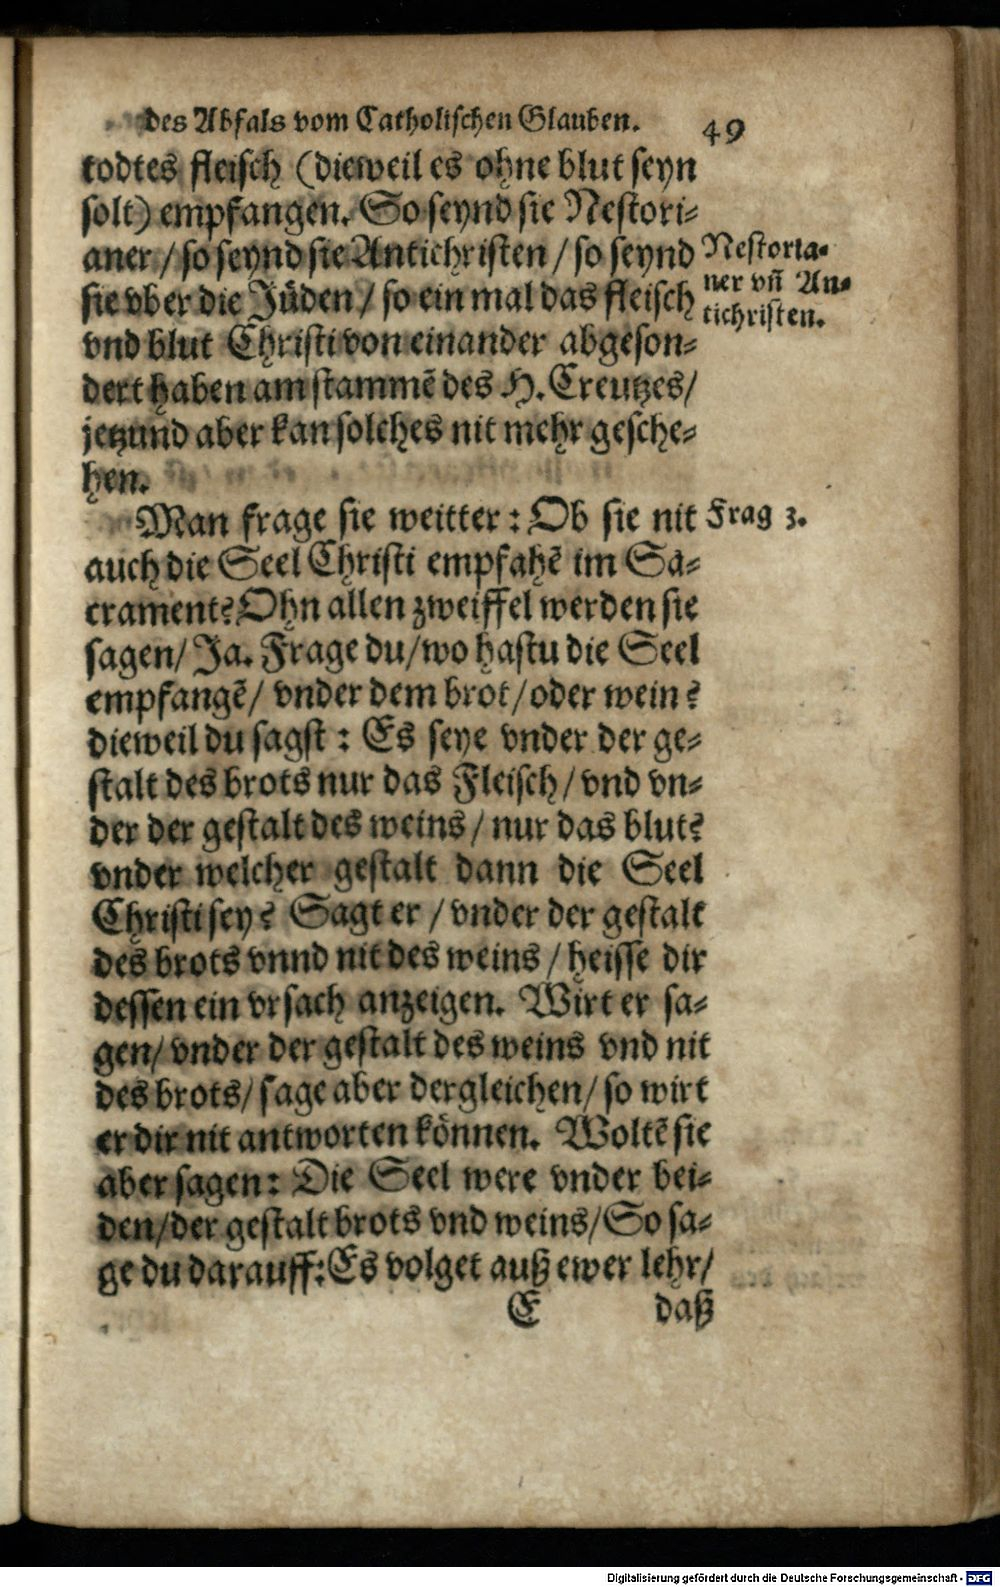 des Abfals vom Catholischen Glauben. 49
todtes fleisch (dieweil es ohne blut seyn
solt) empfangen. So seynd sie Nestori⸗
aner / so seynd sie Antichristen / so seynd
sie vber die Jüden / so ein mal das fleisch
vnd blut Christi von einander abgeson⸗
dert haben am stammẽ des H. Creutzes/
jetzund aber kan solches nit mehr gesche⸗
hen.
Nestoria⸗
ner vñ An⸗
tichristen.
Man frage sie weitter : Ob sie nit
auch die Seel Christi empfahẽ im Sa⸗
crament? Ohn allen zweiffel werden sie
sagen/ Ja. Frage du/wo hastu die Seel
empfangẽ/ vnder dem brot/oder wein?
dieweil du sagst : Es seye vnder der ge⸗
stalt des brots nur das Fleisch / vnd vn⸗
der der gestalt des weins / nur das blut?
vnder welcher gestalt dann die Seel
Christi sey? Sagt er / vnder der gestalt
des brots vnnd nit des weins / heisse dir
dessen ein vrsach anzeigen. Wirt er sa⸗
gen/ vnder der gestalt des weins vnd nit
des brots/ sage aber dergleichen/ so wirt
er dir nit antworten können. Woltẽ sie
aber sagen: Die Seel were vnder bei⸗
den/der gestalt brots vnd weins/So sa⸗
ge du darauff:Es volget auß ewer lehr/
Frag 3.
E daß
Digitalisierung gefördert durch die Deutsche Forschungsgemeinschaft - DFG